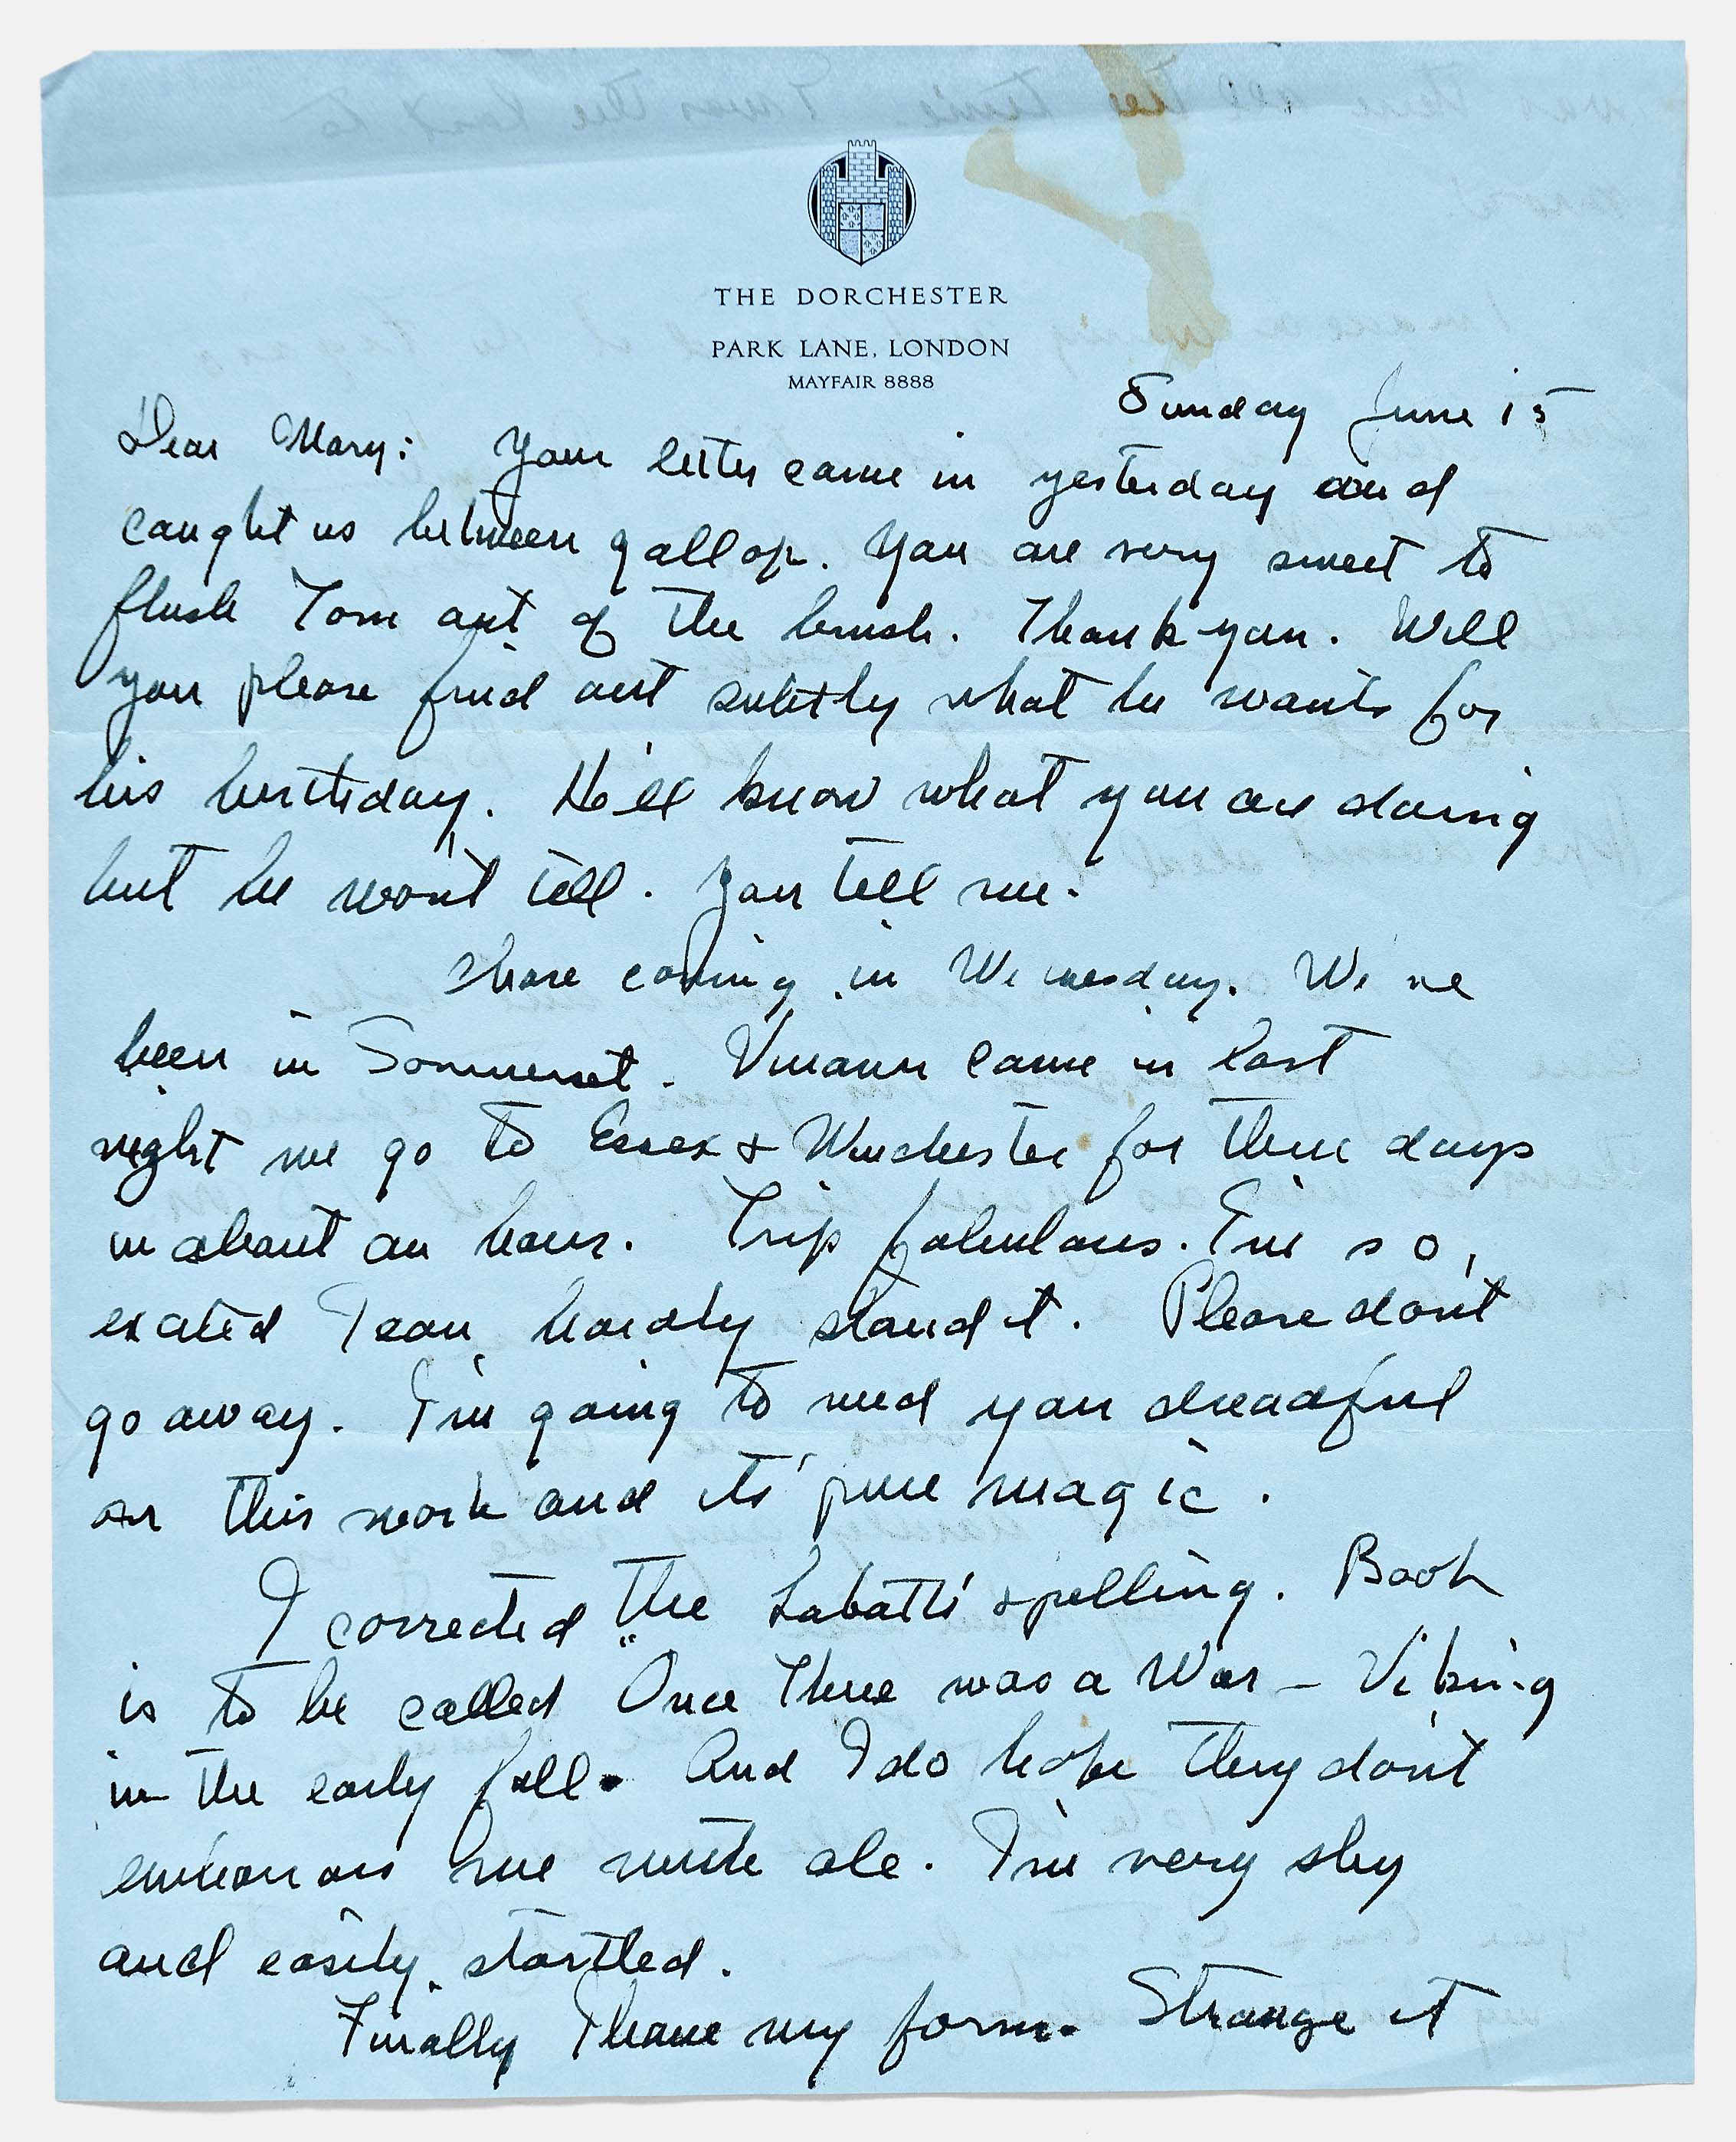 THE DORCHESTER
PARK LANE, LONDON
MAYFAIR 8888
Sunday June 15
Dear Mary: Your letter came in yesterday and
caught us between gallop. You are very sweet to
flush Tom out of the brush. Thank you. Will
you please find out subtly what he wants for
his birthday. He'll know what you are doing
but he won't tell. You tell me.
coming in Wenesday. We've
been in Sommerset. came in last
night we go to Essex & Winchester for three days
in about an hour. Trip fabulous. I'm so
excited I can hardly stand it. Please don't
go away. I'm going to need you dreadful
on this work and its' pure magic.
I corrected the spelling. Book
is to be called "Once There was a War – Viking
in the early fall. And I do hope they don't
me . I'm very shy
and easily startled.
Finally I have my form. Strange it